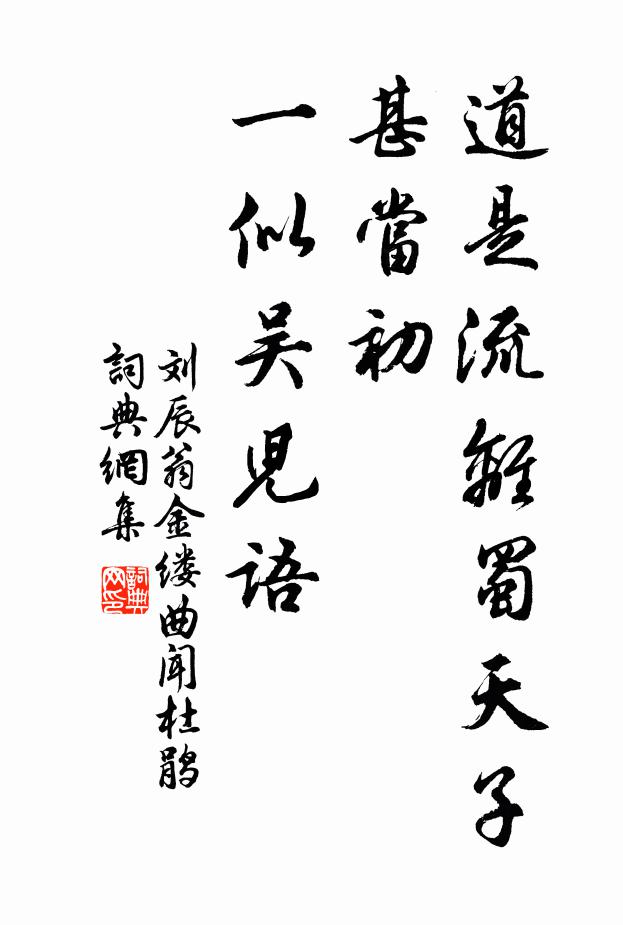 道是流離蜀天子
甚當初
一似吴兒語
刘辰翁金缕曲闻杜鹃
詞典網集
詞典网印